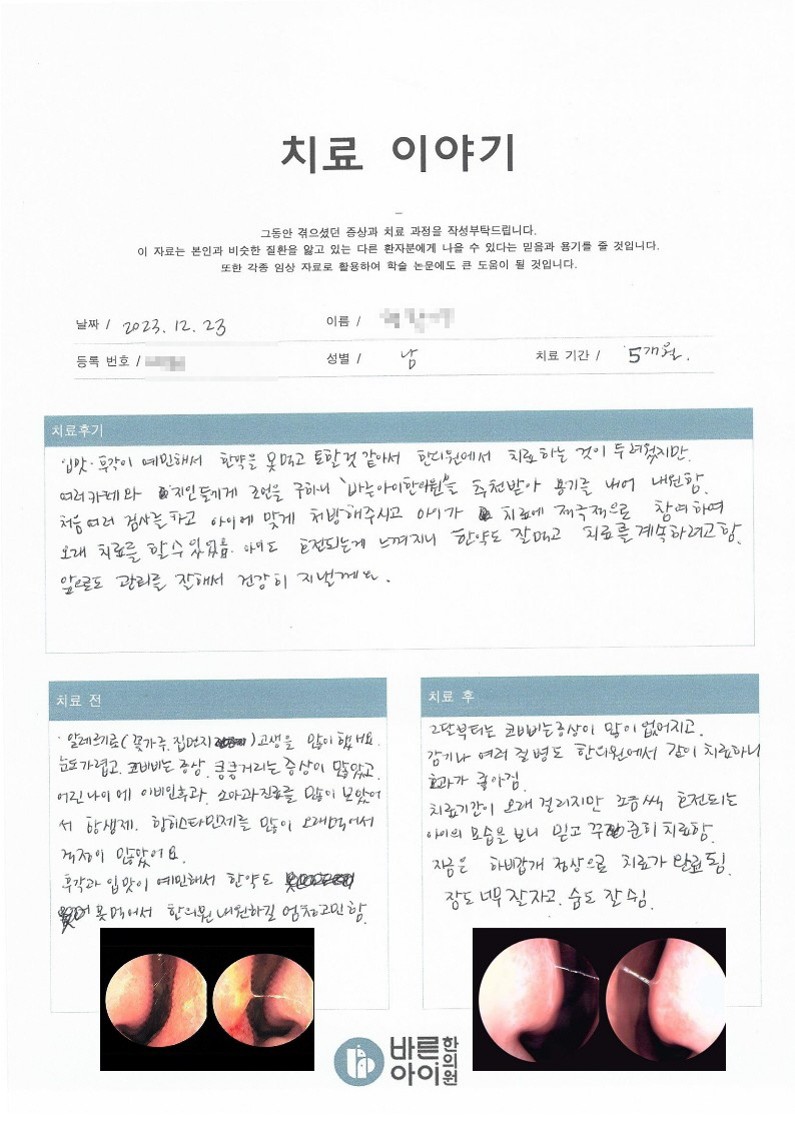 치료 이야기
그동안 겪으셨던 증상과 치료 과정을 작성부탁드립니다.
이 자료는 본인과 비슷한 질환을 앓고 있는 다른 환자분에게 나을 수 있다는 믿음과 용기를 줄 것입니다.
또한 각종 임상 자료로 활용하여 학술 논문에도 큰 도움이 될 것입니다.
날짜 / 2023. 12. 23 이름 /
등록 번호 / 성별 / 남 치료 기간 / 5개월.
치료후기
입맛·후각이 예민해서 한약을 못먹고 토할것 같아서 한의원에서 치료하는 것이 두려웠지만.
여러카페와 지인들에게 조언을 구하니 "바른아이한의원"을 추천받아 용기를 내어 내원함.
처음 여러 검사를 하고 아이에 맞게 처방해주시고 아이가 치료에 적극적으로 참여하여
오래 치료를 할수 있었음. 아이도 호전되는게 느껴지니 한약도 잘먹고 치료를 계속하려고함.
앞으로도 관리를 잘해서 건강히 지낼께요.
치료 전
· 알레르기로(꽃가루, 집먼지) 고생을 많이 했어요.
눈도가렵고. 코비비는 증상. 킁킁거리는 증상이 많았고.
어린나이에 이비인후과. 소아과진료를 많이 보았어
서 항생제. 항히스타민제를 많이 오래먹어서
걱정이 많았어요.
후각과 입맛이 예민해서 한약도
못먹어서 한의원 내원하길 엄청고민함.
치료 후
2달부터는 코비비는증상이 많이 없어지고.
감기나 여러 질병도 한의원에서 같이 치료하니
효과가 좋아짐.
치료기간이 오래 걸리지만 조금씩 호전되는
아이의 모습을 보니 믿고 꾸준히 치료함.
지금은 하비갑개 정상으로 치료가 완료됨.
잠도 너무 잘자고. 숨도 잘쉼.
바른
아이
한의원